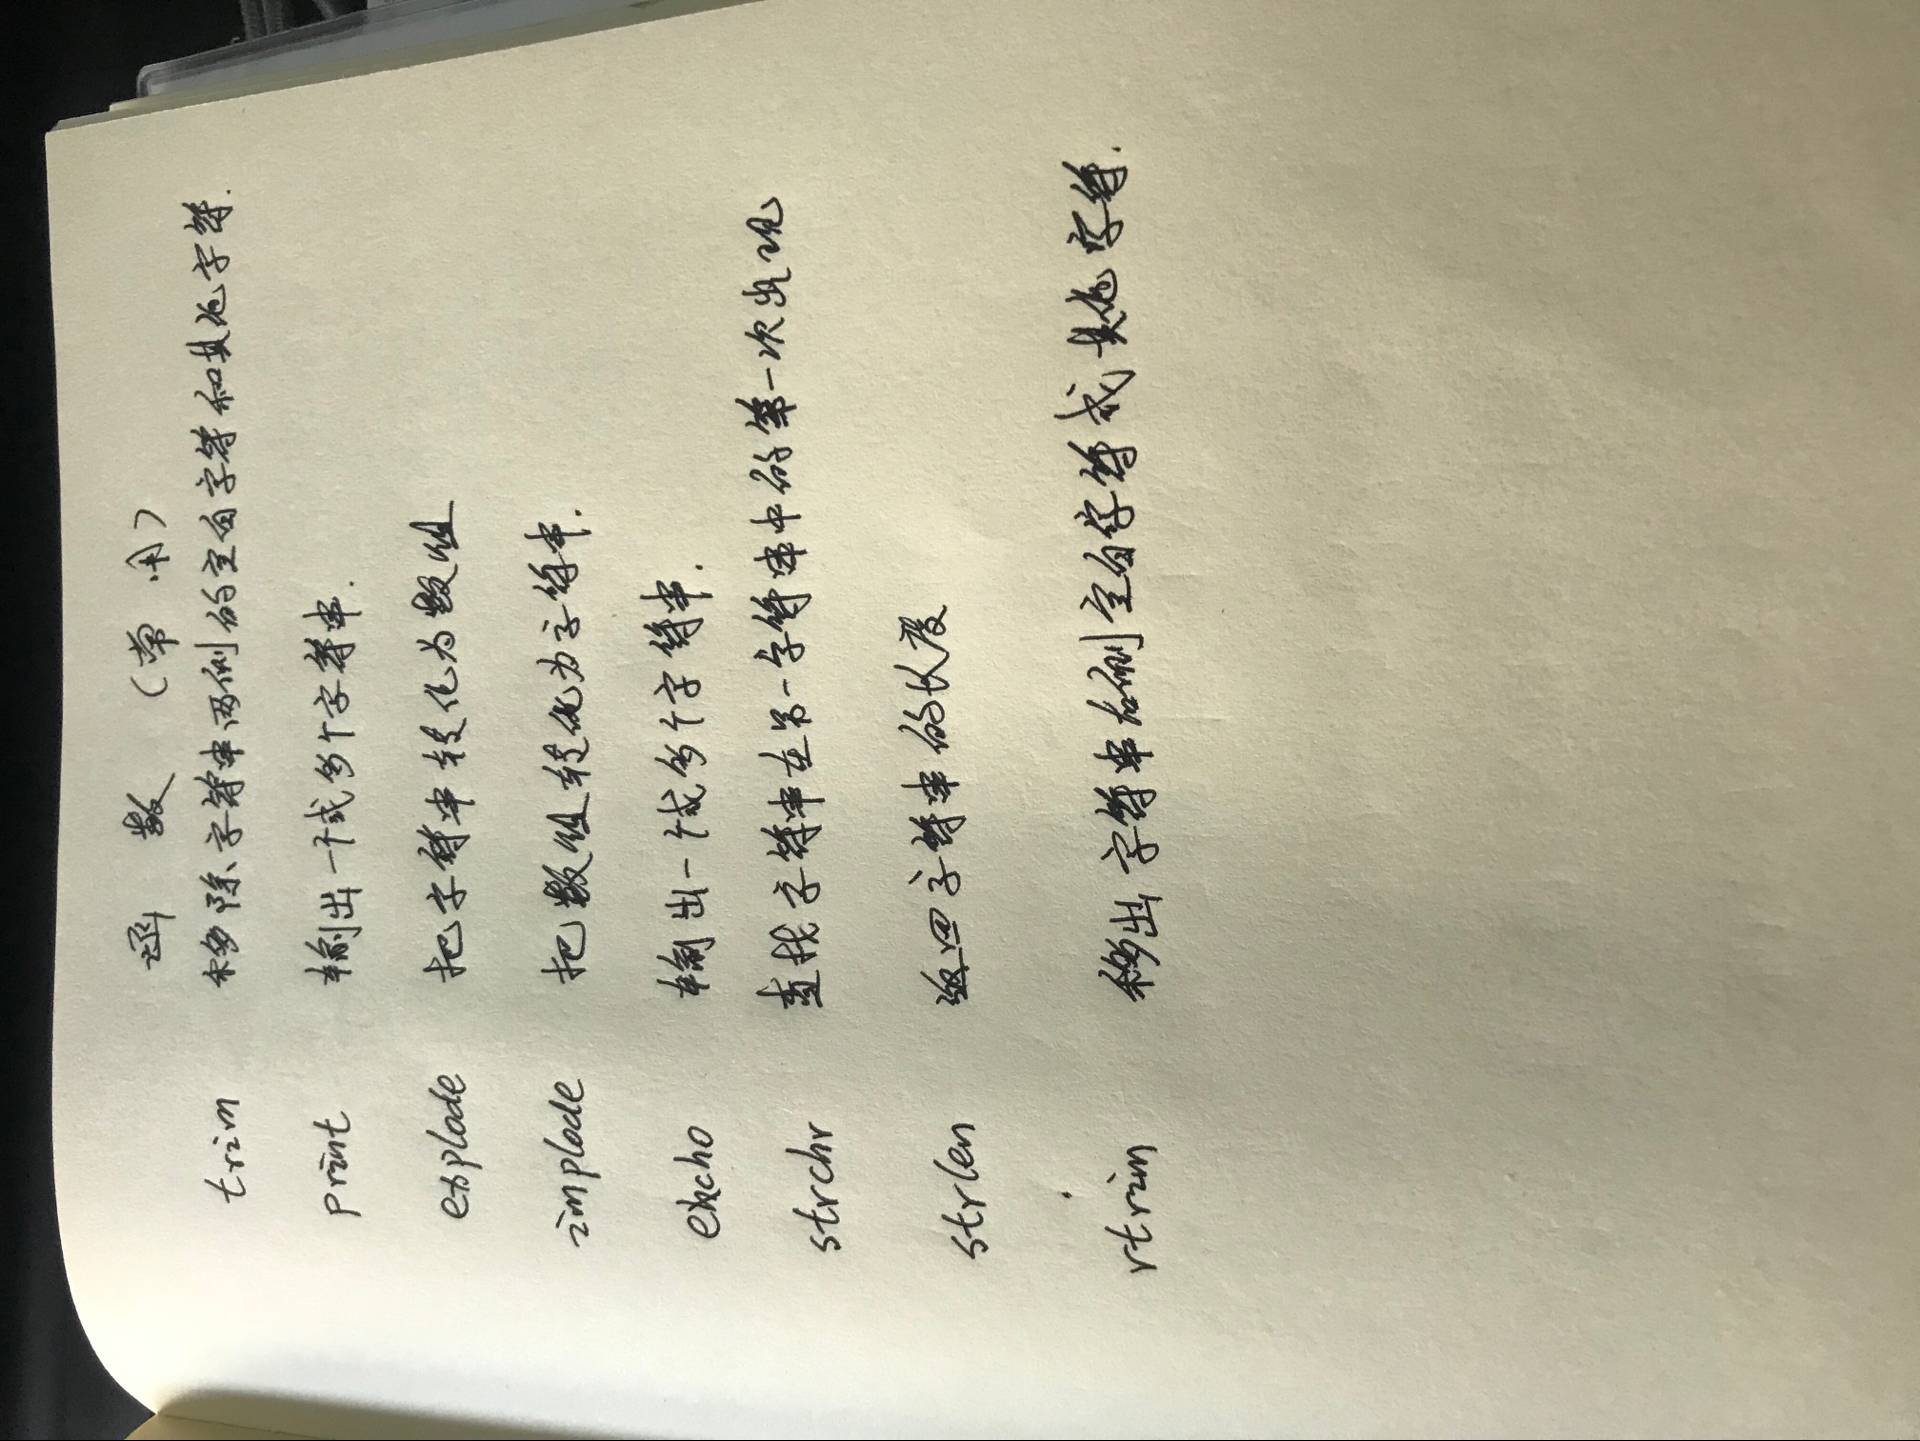 函数（常用）
trim 移除字符串两侧的空白字符和其他字符.
print 输出一个或多个字符串.
explode 把字符串转化为数组
implode 把数组转化为字符串.
echo 输出一个或多个字符串.
strchr 查找字符串在另一字符串中的第一次出现
strlen 返回字符串的长度
rtrim 移出字符串右侧空白字符或其他字符.